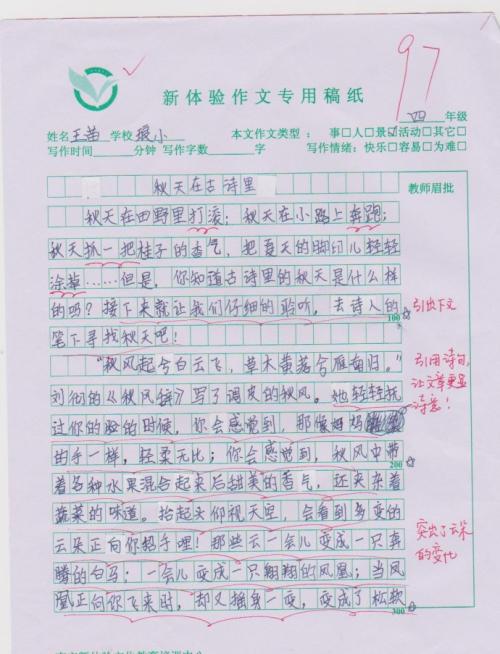 97
新体验作文专用稿纸
四 年级
姓名 王苗 学校 援小 本文作文类型： 事□人□景☑活动□其它□
写作时间 分钟 写作字数 字 写作情绪：快乐□容易□为难□
秋天在古诗里
教师眉批
秋天在田野里打滚；秋天在小路上奔跑；
秋天抓一把桂子的香气，把夏天的脚印儿轻轻
涂草……但是，你知道古诗里的秋天是什么样
的吗？接下来就让我们仔细的聆听，去诗人的
100
引出下文
笔下寻找秋天吧！
“秋风起兮白云飞，草木黄落兮雁南归。”
引用诗句，
让文章更显
诗意！
刘彻的《秋风辞》写了调皮的秋风。她轻轻抚
过你的脸的时候，你会感觉到，那像妈妈
的手一样，轻柔无比；你会感觉到，秋风中带
200
着各种水果混合起来后甜美的香气，还夹杂着
蔬菜的味道。抬起头仰视天空，会看到多变的
云朵正向你招手哩！那些云一会儿变成一只奔
突出了云朵
的变化
腾的白马；一会儿变成一只翱翔的凤凰；当凤
凰正向你飞来时，却又摇身一变，变成了松软
300